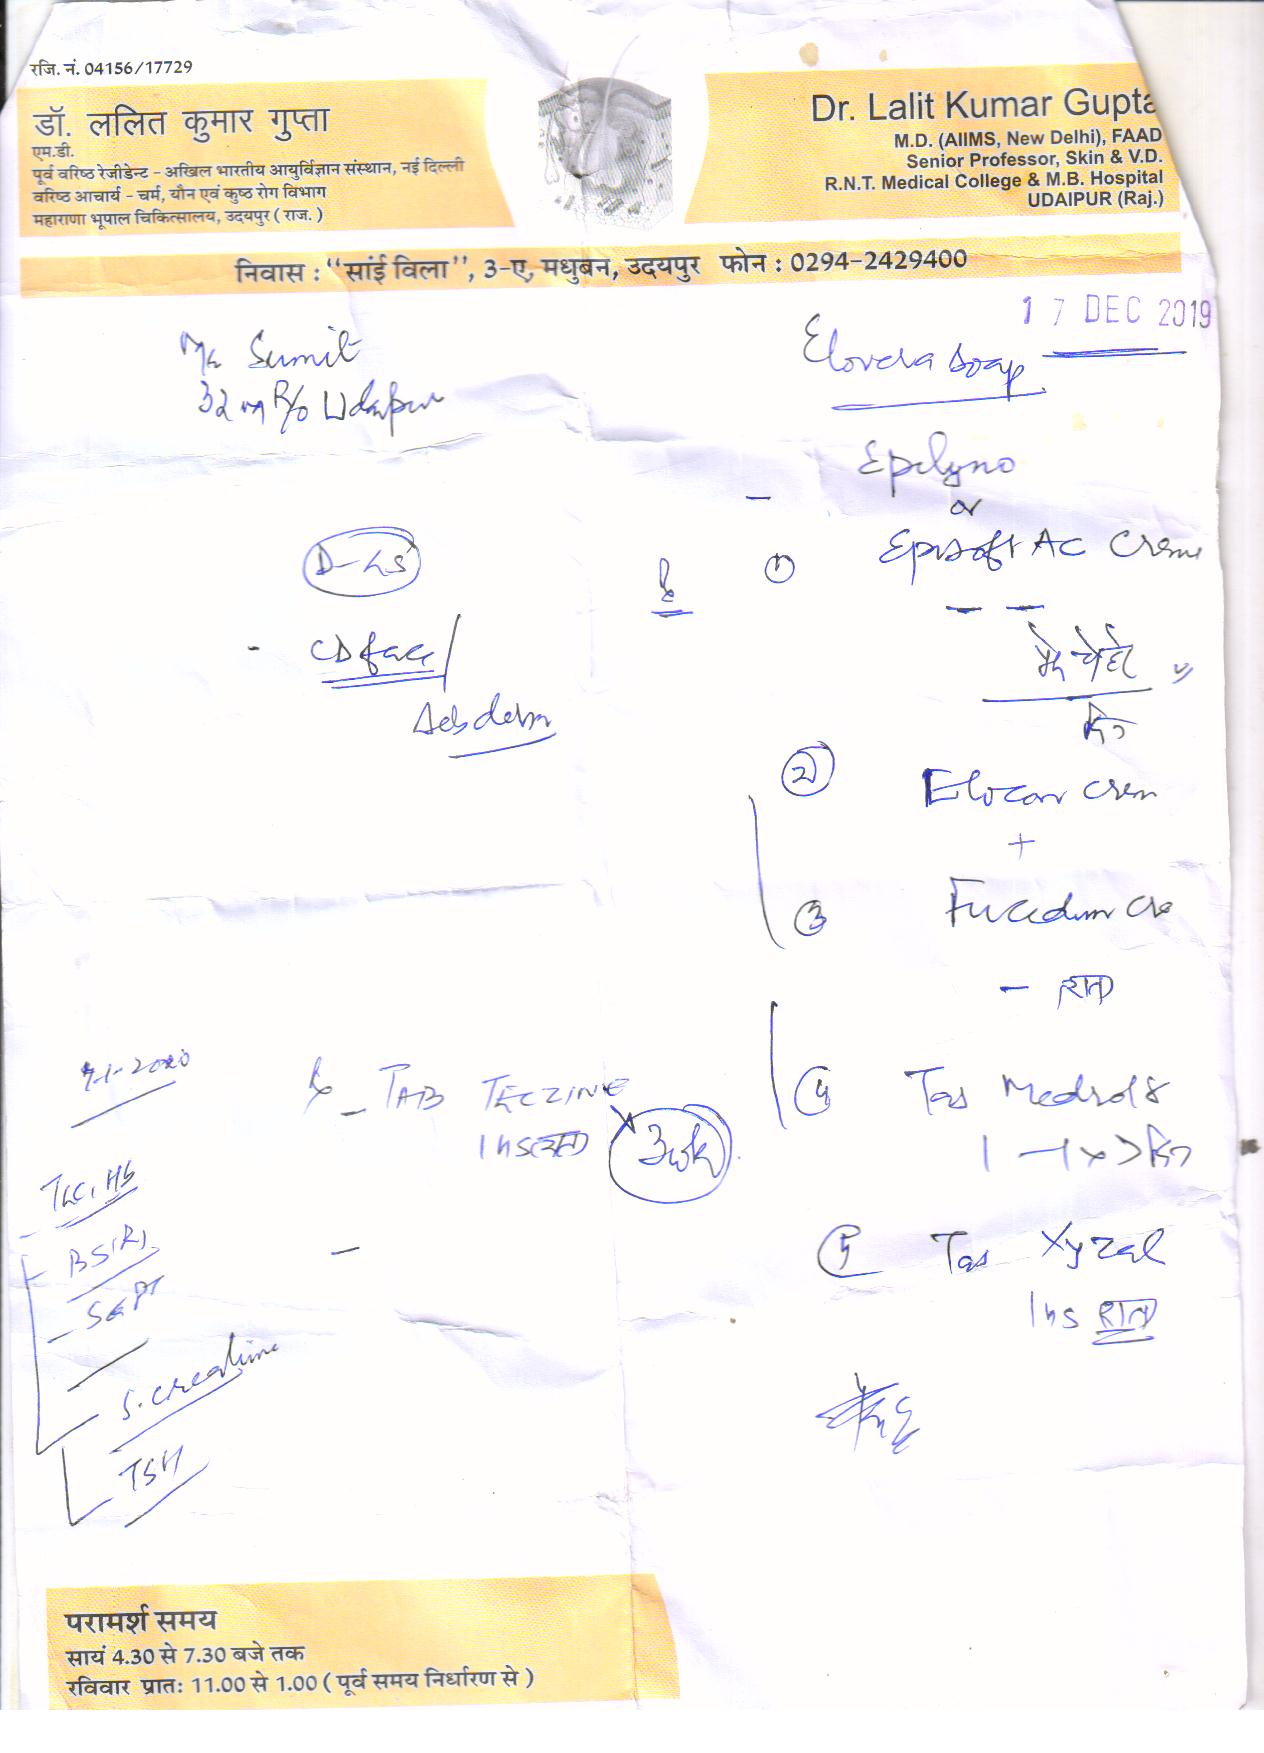 रजि. नं. 04156/17729
डॉ. ललित कुमार गुप्ता
एम.डी.
पूर्व वरिष्ठ रेजीडेन्ट - अखिल भारतीय आयुर्विज्ञान संस्थान, नई दिल्ली
वरिष्ठ आचार्य - चर्म, यौन एवं कुष्ठ रोग विभाग
महाराणा भूपाल चिकित्सालय, उदयपुर ( राज. )
Dr. Lalit Kumar Gupta
M.D. (AIIMS, New Delhi), FAAD
Senior Professor, Skin & V.D.
R.N.T. Medical College & M.B. Hospital
UDAIPUR (Raj.)
निवास : "सांई विला", ३-ए, मधुबन, उदयपुर फोन : 0294-2429400
17 DEC 2019
Mr Sumit
32 m R/o Udaipur
Elovera soap
Epilyno
or
① Episoft AC Creme
CD face /
Sebderm
② Elocon Crem
+
③ Fucederm Cre
- रात
④ Tab Medrol 8
⑤ Tab Xyzal
1 hs रात
7-1-2020
- TAB TECZINE
1 hs रात
3 wk
TLC, Hb
BS(R)
SGPT
S. creatinine
TSH
परामर्श समय
सायं 4.30 से 7.30 बजे तक
रविवार प्रातः 11.00 से 1.00 ( पूर्व समय निर्धारण से )